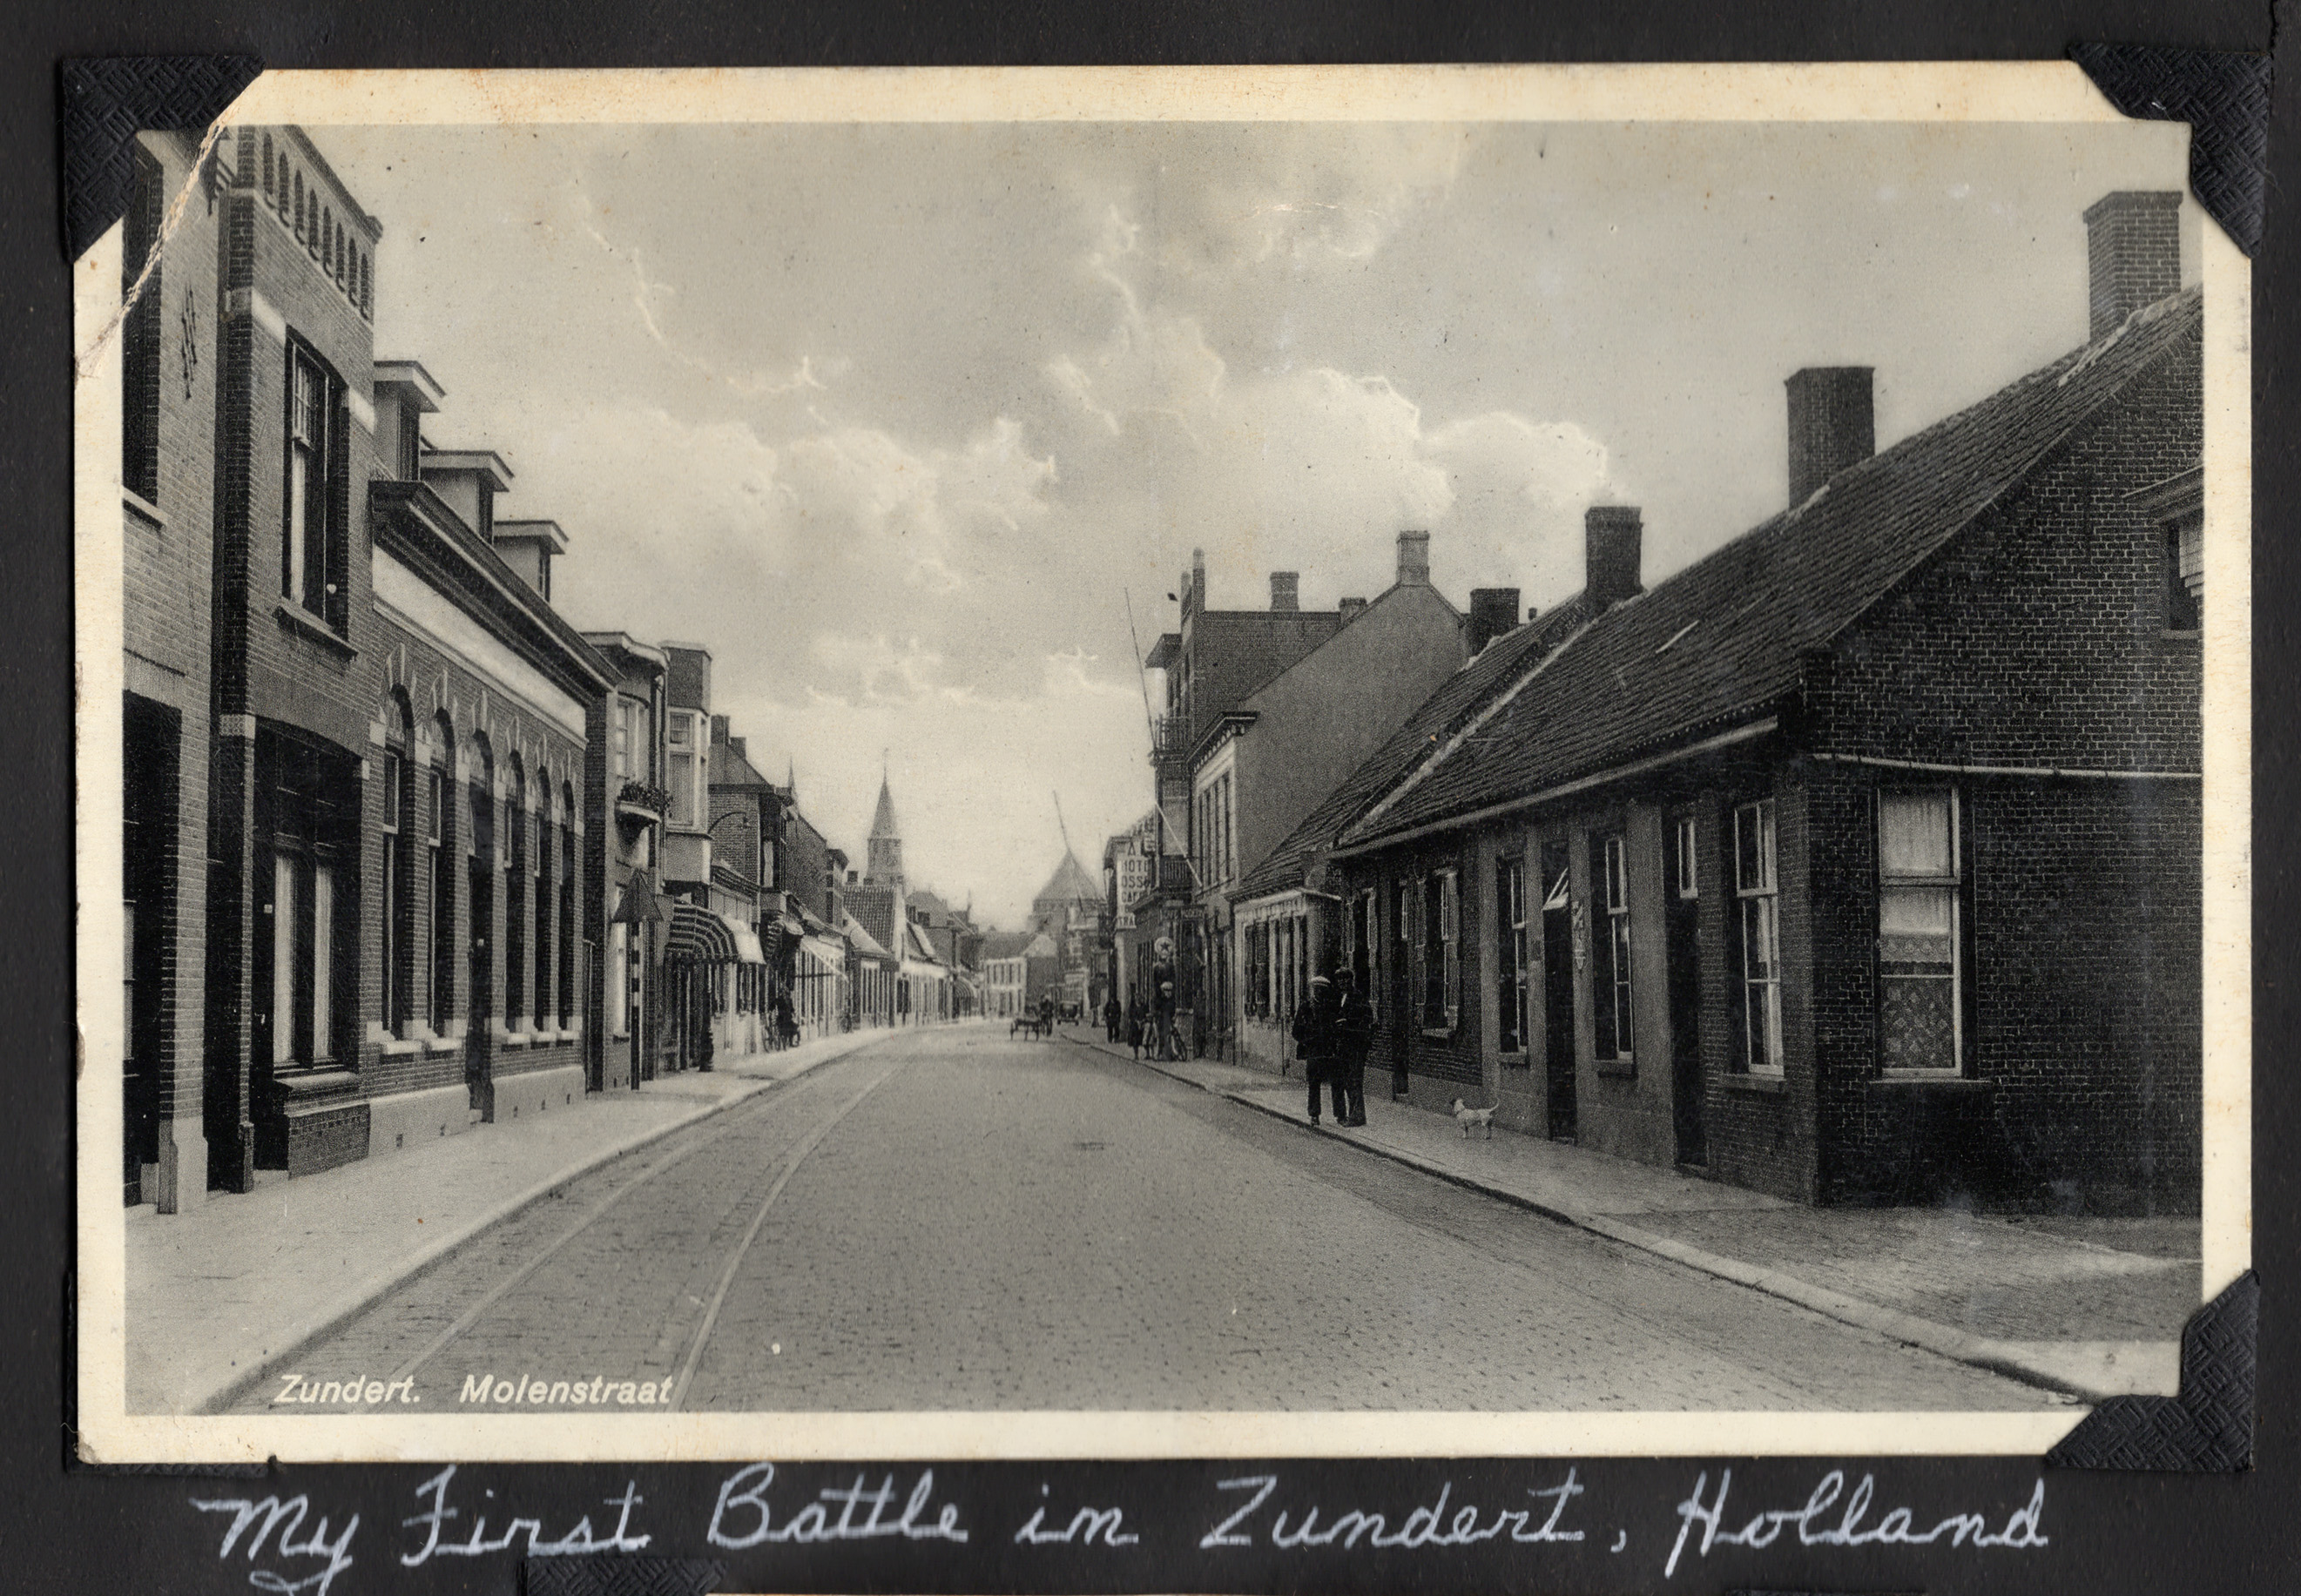 HOT
Zundert. Molenstraat
My First Battle in Zundert, Holland